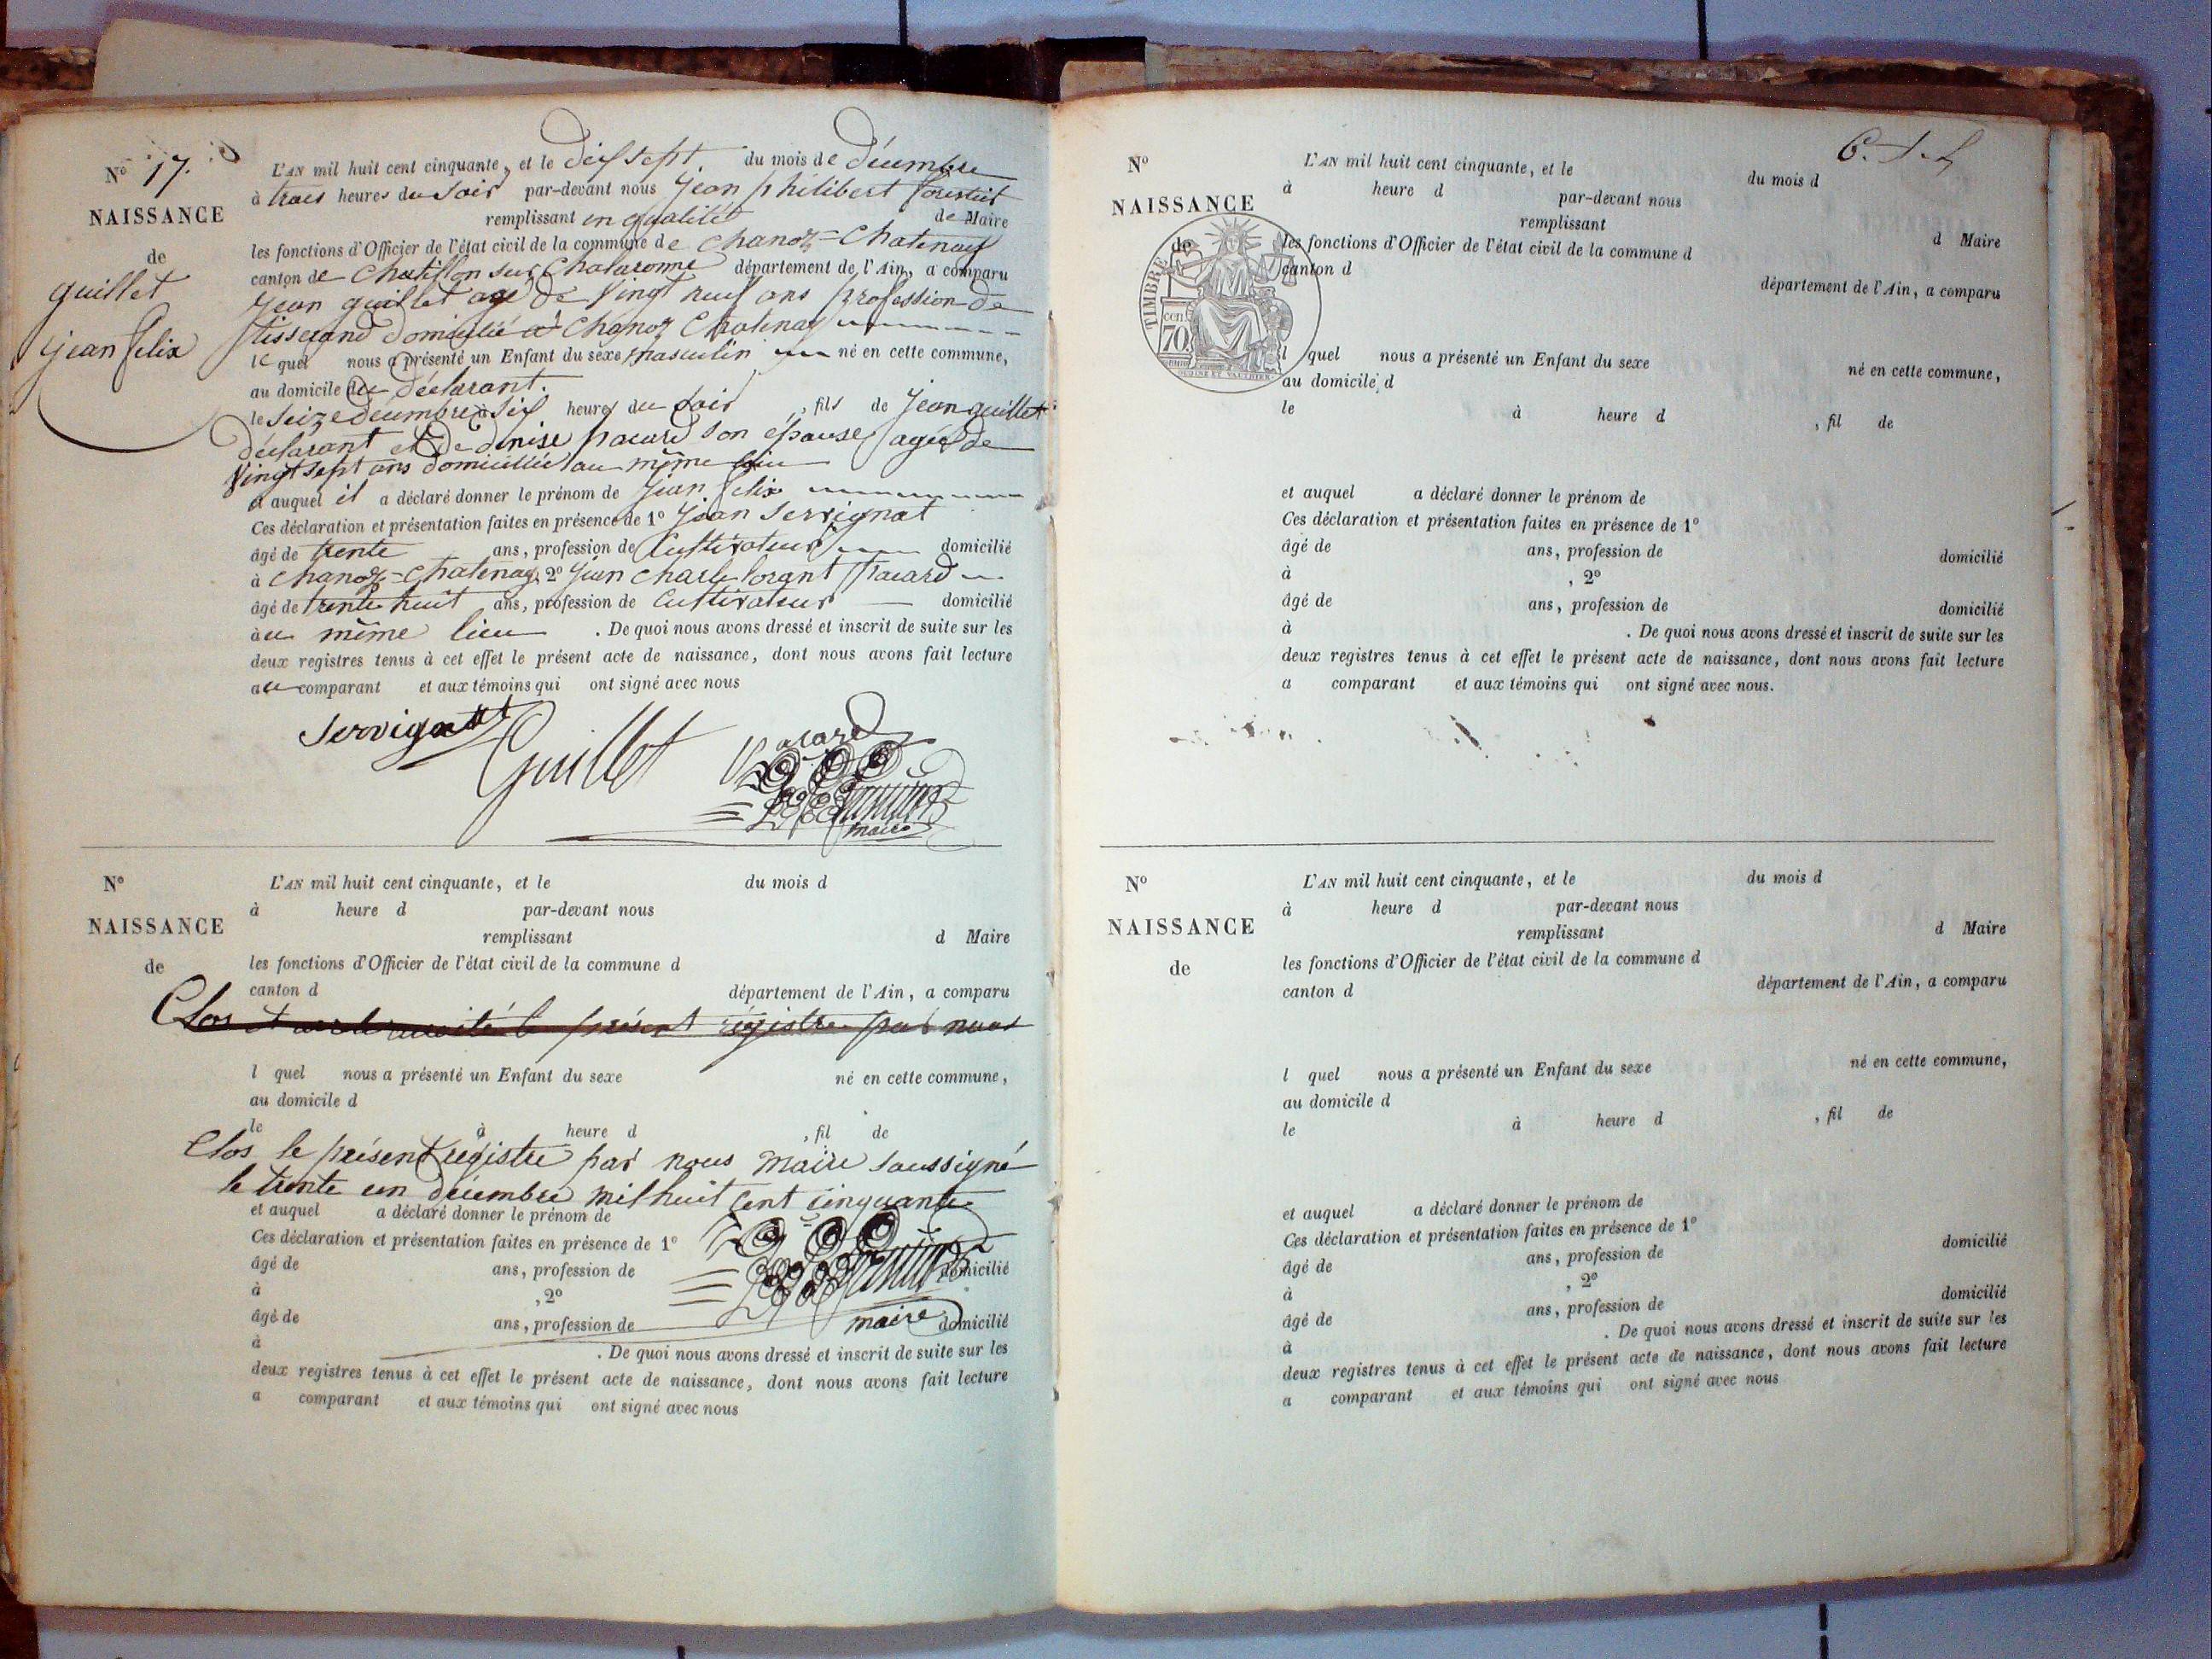 N° 17.
NAISSANCE
de
guillet
jean felix
L'AN mil huit cent cinquante, et le dix sept. du mois de décembre
à trois heures du soir par-devant nous Jean philibert
remplissant en qualité de Maire
les fonctions d'Officier de l'état civil de la commune de Chanoz-Chatenay
canton de Chatillon sur Chalaronne département de l'Ain, a comparu
Jean guillet agé de Vingt neuf ans profession de
tisserand domicilié à Chanoz Chatenay
le quel nous a présenté un Enfant du sexe masculin né en cette commune,
au domicile du déclarant.
le seize decembre à six heures du soir , fils de Jean guillet
déclarant et de denise pacard son épouse agée de
Vingt sept ans domiciliée au même lieu
et auquel il a déclaré donner le prénom de Jean felix
Ces déclaration et présentation faites en présence de 1° Jean Servignat
âgé de trente ans, profession de Cultivateur domicilié
à Chanoz-Chatenay, 2° Jean Charle pacard
âgé de trente huit ans, profession de Cultivateur domicilié
à au même lieu . De quoi nous avons dressé et inscrit de suite sur les
deux registres tenus à cet effet le présent acte de naissance, dont nous avons fait lecture
au comparant et aux témoins qui ont signé avec nous
Servignat Guillet Pacard
maire
N°
NAISSANCE
de
L'AN mil huit cent cinquante, et le du mois d
à heure d par-devant nous
remplissant d Maire
les fonctions d'Officier de l'état civil de la commune d
canton d département de l'Ain, a comparu
Clos et le présent régistre par nous
l quel nous a présenté un Enfant du sexe né en cette commune,
au domicile d
le à heure d , fil de
Clos le présent régistre par nous maire soussigné
le trente un décembre mil huit cent cinquante
et auquel a déclaré donner le prénom de
Ces déclaration et présentation faites en présence de 1°
âgé de ans, profession de domicilié
à , 2°
maire
âgé de ans, profession de domicilié
à . De quoi nous avons dressé et inscrit de suite sur les
deux registres tenus à cet effet le présent acte de naissance, dont nous avons fait lecture
a comparant et aux témoins qui ont signé avec nous
N°
NAISSANCE
de
TIMBRE
70 cent.
L'AN mil huit cent cinquante, et le du mois d
à heure d par-devant nous
remplissant d Maire
les fonctions d'Officier de l'état civil de la commune d
canton d département de l'Ain, a comparu
l quel nous a présenté un Enfant du sexe né en cette commune,
au domicile d
le à heure d , fil de
et auquel a déclaré donner le prénom de
Ces déclaration et présentation faites en présence de 1°
âgé de ans, profession de domicilié
à , 2°
âgé de ans, profession de domicilié
à . De quoi nous avons dressé et inscrit de suite sur les
deux registres tenus à cet effet le présent acte de naissance, dont nous avons fait lecture
a comparant et aux témoins qui ont signé avec nous.
N°
NAISSANCE
de
L'AN mil huit cent cinquante, et le du mois d
à heure d par-devant nous
remplissant d Maire
les fonctions d'Officier de l'état civil de la commune d
canton d département de l'Ain, a comparu
l quel nous a présenté un Enfant du sexe né en cette commune,
au domicile d
le à heure d , fil de
et auquel a déclaré donner le prénom de
Ces déclaration et présentation faites en présence de 1°
âgé de ans, profession de domicilié
à , 2°
âgé de ans, profession de domicilié
à . De quoi nous avons dressé et inscrit de suite sur les
deux registres tenus à cet effet le présent acte de naissance, dont nous avons fait lecture
a comparant et aux témoins qui ont signé avec nous